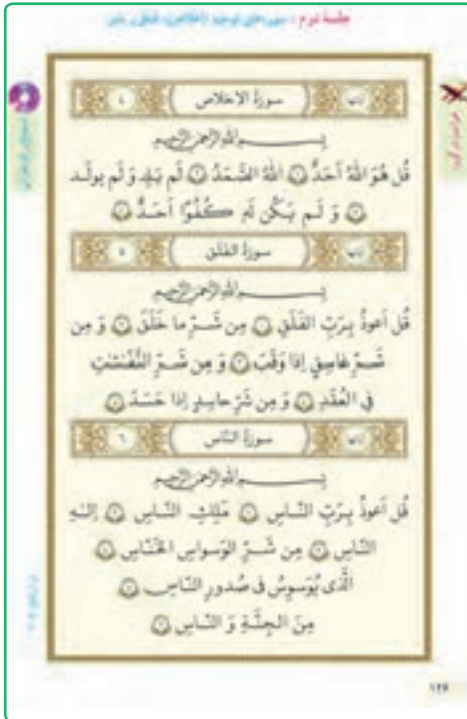 جلسهٔ دوم : سوره‌های توحید (اخلاص)، فلق و ناس
سورة الاخلاص ٤
بسم الله الرحمن الرحیم
قُل هُوَ اللهُ اَحَدٌ ١ اَللهُ الصَّمَدُ ٢ لَم يَلِد وَ لَم يولَد
٣ وَ لَم يَكُن لَه كُفُوًا اَحَدٌ ٤
سورة الفلق ٥
بسم الله الرحمن الرحیم
قُل اَعوذُ بِرَبِّ الفَلَقِ ١ مِن شَرِّ ما خَلَقَ ٢ وَ مِن
شَرِّ غاسِقٍ اِذا وَقَبَ ٣ وَ مِن شَرِّ النَّفّٰثٰتِ
فِي العُقَدِ ٤ وَ مِن شَرِّ حاسِدٍ اِذا حَسَدَ ٥
سورة النّاس ٦
بسم الله الرحمن الرحیم
قُل اَعوذُ بِرَبِّ النّاسِ ١ مَلِكِ النّاسِ ٢ اِلٰهِ
النّاسِ ٣ مِن شَرِّ الوَسواسِ الخَنّاسِ ٤
اَلَّذى يُوَسوِسُ فى صُدورِ النّاسِ ٥
مِنَ الجِنَّةِ وَ النّاسِ ٦
١٢۶